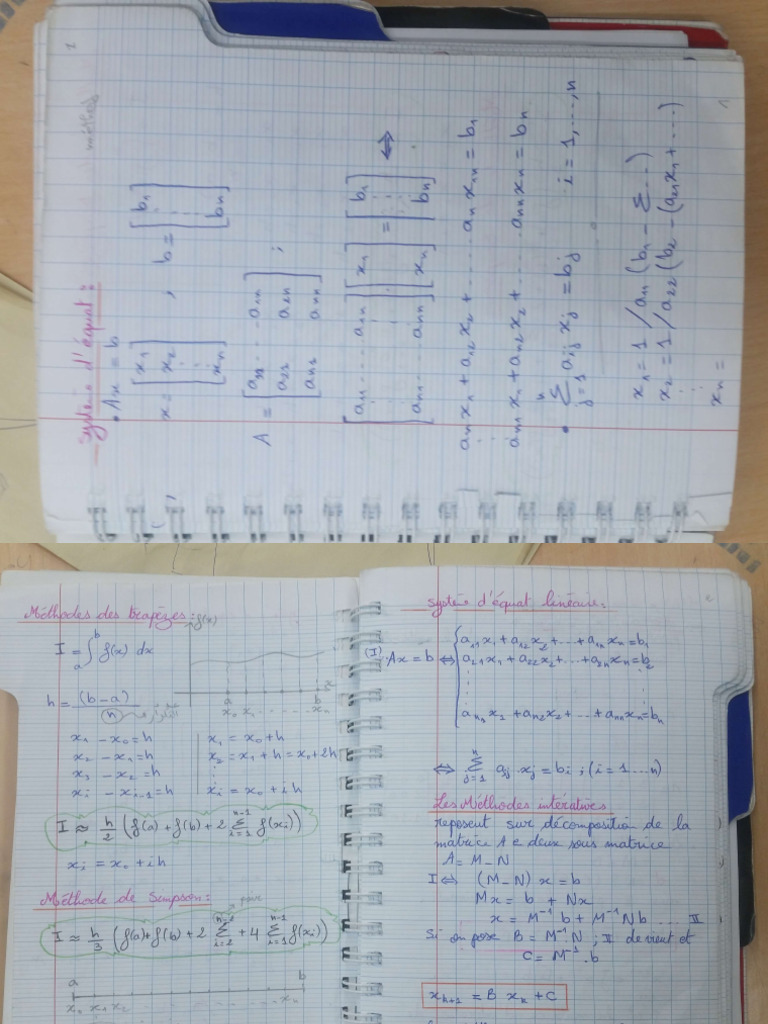 2
méthod
Système d'équat :
• Ax = b
x = [x1 x2 ⋮ xn] , b = [b1 ⋮ bn]
A = [a11 ... a1n
a22 a2n
an2 ann] ;
[a11 ... a1n ⋮ an1 ... ann] [x1 ⋮ xn] = [b1 ⋮ bn] ⇔
a11 x1 + a12 x2 + ..... an x1n = b1
an1 x1 + an2 x2 + ..... ann xn = bn
• n∑j=1 aij xj = bj i = 1, ..., n
x1 = 1 / a11 (b1 - ∑ ...)
x2 = 1 / a22 (b2 - (a21 x1 + ...)
⋮
xn =
1
Méthodes des trapèzes :
f(x)
I = ∫ab f(x) dx
a b x
x0 x1 ..... xn
h = (b-a) / n
x1 - x0 = h x1 = x0 + h
x2 - x1 = h x2 = x1 + h = x0 + 2h
x3 - x2 = h ⋮
xi - xi-1 = h xi = x0 + ih
I ≈ h/2 (f(a) + f(b) + 2 n-1∑i=1 f(xi))
xi = x0 + ih
Méthode de Simpson :
paire
I ≈ h/3 (f(a) + f(b) + 2 n-2∑i=2 + 4 n-1∑i=1 f(xi))
a b
x0 x1 x2 xn
2
système d'équat linéaire :
a11 x1 + a12 x2 + ... + a1n xn = b1
(I) : Ax = b ⇔ a21 x1 + a22 x2 + ... + a2n xn = b2
⋮
an1 x1 + an2 x2 + ... + ann xn = bn
⇔ n∑j=1 aij xj = bi ; (i = 1 ... n)
Les Méthodes intératives
reposent sur décomposition de la
matrice A e deux sous matrice
A = M - N
I ⇔ (M - N) x = b
Mx = b + Nx
x = M⁻¹ b + M⁻¹ N b .... II
Si on pose B = M⁻¹ N ; II devient et
C = M⁻¹ . b
xk+1 = B xk + C